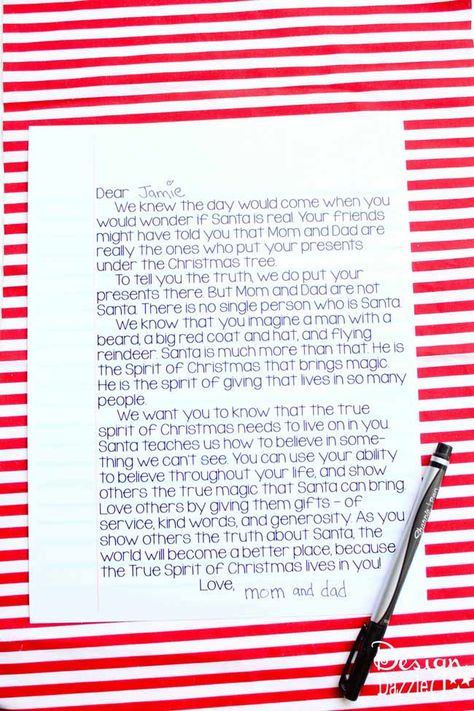 Dear Jamie
We knew the day would come when you
would wonder if Santa is real. Your friends
might have told you that Mom and Dad are
really the ones who put your presents
under the Christmas tree.
To tell you the truth, we do put your
presents there. But Mom and Dad are not
Santa. There is no single person who is Santa.
We know that you imagine a man with a
beard, a big red coat and hat, and flying
reindeer. Santa is much more than that. He is
the Spirit of Christmas that brings magic.
He is the spirit of giving that lives in so many
people.
We want you to know that the true
spirit of Christmas needs to live on in you.
Santa teaches us how to believe in some-
thing we can't see. You can use your ability
to believe throughout your life, and show
others the true magic that Santa can bring.
Love others by giving them gifts - of
service, kind words, and generosity. As you
show others the truth about Santa, the
world will become a better place, because
the True Spirit of Christmas lives in you!
Love, mom and dad
Sharpie
Design
Dazzle!